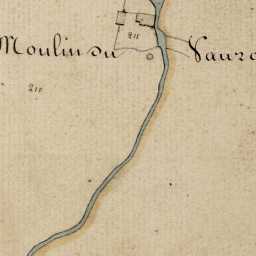 Moulin du Vauro
211
210